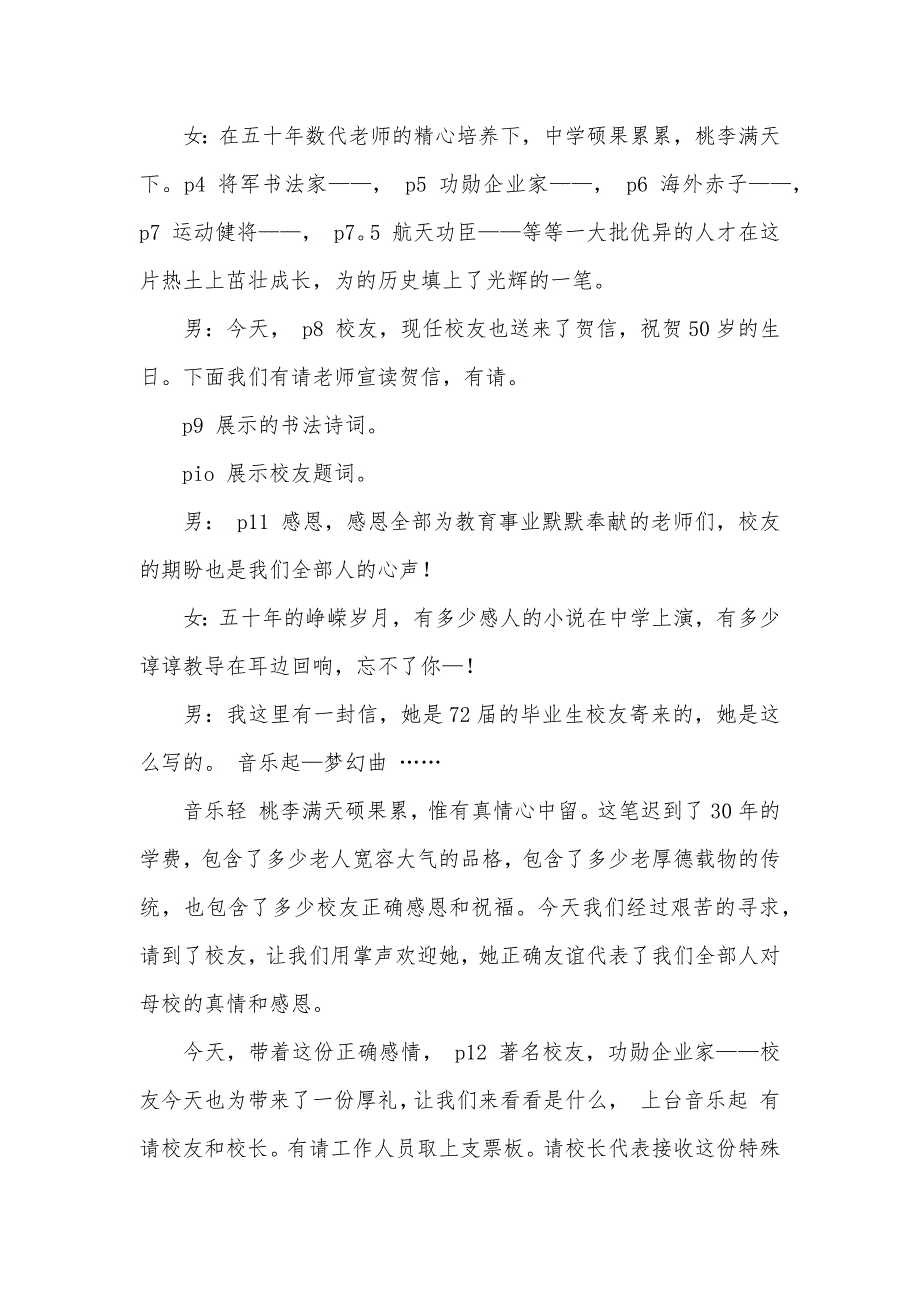 女：在五十年数代老师的精心培养下，中学硕果累累，桃李满天
下。p4 将军书法家——， p5 功勋企业家——， p6 海外赤子——，
p7 运动健将——， p7。5 航天功臣——等等一大批优异的人才在这
片热土上茁壮成长，为的历史填上了光辉的一笔。
男：今天， p8 校友，现任校友也送来了贺信，祝贺 50 岁的生
日。下面我们有请老师宣读贺信，有请。
p9 展示的书法诗词。
pio 展示校友题词。
男： p11 感恩，感恩全部为教育事业默默奉献的老师们，校友
的期盼也是我们全部人的心声！
女：五十年的峥嵘岁月，有多少感人的小说在中学上演，有多少
谆谆教导在耳边回响，忘不了你—！
男：我这里有一封信，她是 72 届的毕业生校友寄来的，她是这
么写的。 音乐起—梦幻曲 ……
音乐轻 桃李满天硕果累，惟有真情心中留。这笔迟到了 30 年的
学费，包含了多少老人宽容大气的品格，包含了多少老厚德载物的传
统，也包含了多少校友正确感恩和祝福。今天我们经过艰苦的寻求，
请到了校友，让我们用掌声欢迎她，她正确友谊代表了我们全部人对
母校的真情和感恩。
今天，带着这份正确感情， p12 著名校友，功勋企业家——校
友今天也为带来了一份厚礼，让我们来看看是什么， 上台音乐起 有
请校友和校长。有请工作人员取上支票板。请校长代表接收这份特殊